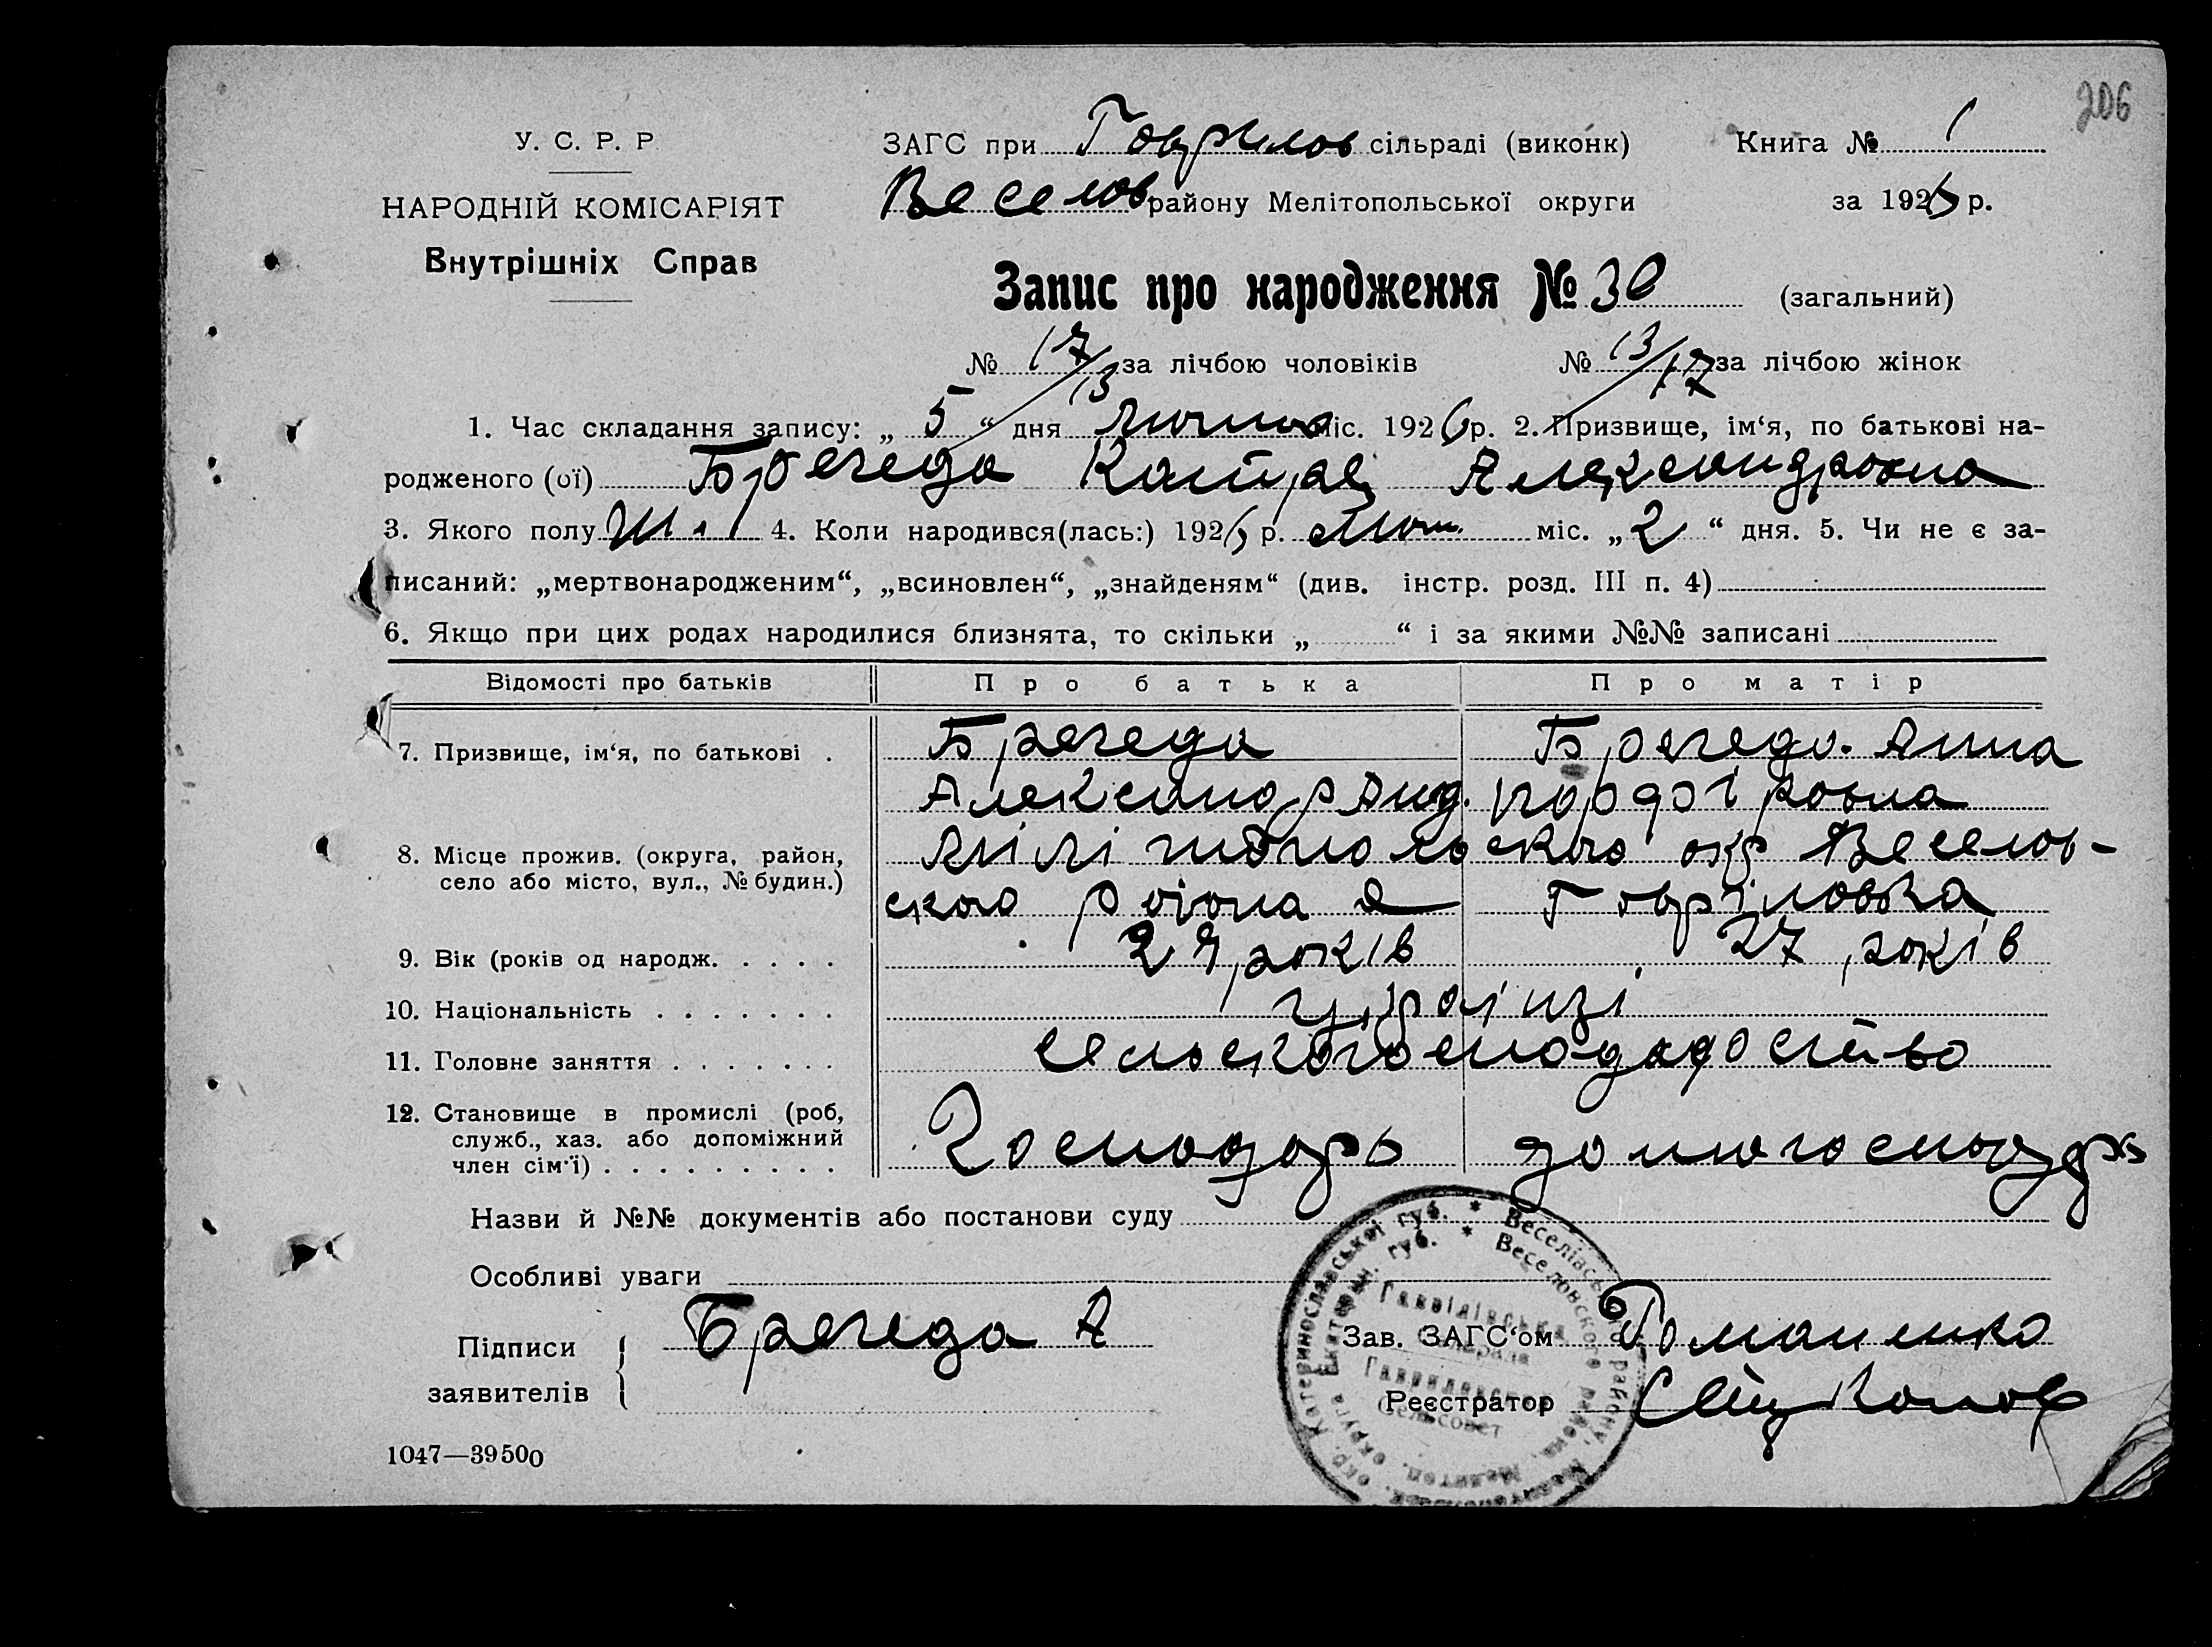 206
У. С. Р. Р
НАРОДНІЙ КОМІСАРІЯТ
Внутрішніх Справ
ЗАГС при Гаврилов сільраді (виконк) Книга № 1
Веселов району Мелітопольської округи за 1926 р.
Запис про народження № 30 (загальний)
№ 17/13 за лічбою чоловіків № 13/17 за лічбою жінок
1. Час складання запису: „ 5 “ дня міс. 1926 р. 2. Призвище, ім‘я, по батькові на-
родженого (ої) Брегеда Александровна
3. Якого полу 4. Коли народився(лась:) 1926 р. Лют. міс. „ 2 “ дня. 5. Чи не є за-
писаний: „мертвонародженим“, „всиновлен“, „знайденям“ (див. інстр. розд. III п. 4)
6. Якщо при цих родах народилися близнята, то скільки „ “ і за якими №№ записані
Відомості про батьків Про батька Про матір
7. Призвище, ім‘я, по батькові . Брегеда Брегеда Анна
Александр Анд.
8. Місце прожив. (округа, район, село або місто, вул., № будин.) окр Веселов-
ского района Гаврiловка
9. Вік (років од народж. . . . . років 27 років
10. Національність . . . . . . . украінці
11. Головне заняття . . . . . . . сельскогосподарство
12. Становище в промислі (роб,
служб., хаз. або допоміжний
член сім‘ї) . . . . . . . . . Господарь домогосподарь
Назви й №№ документів або постанови суду
Особливі уваги
Підписи
заявителів
Брегеда А
Зав. ЗАГС‘ом Романенко
Реєстратор
1047—39500
Катеринославської губ. * Веселівського району,
Екатерин. губ. * Веселовского района,
Гаврилівська
сільрада
Гавриловский
сельсовет